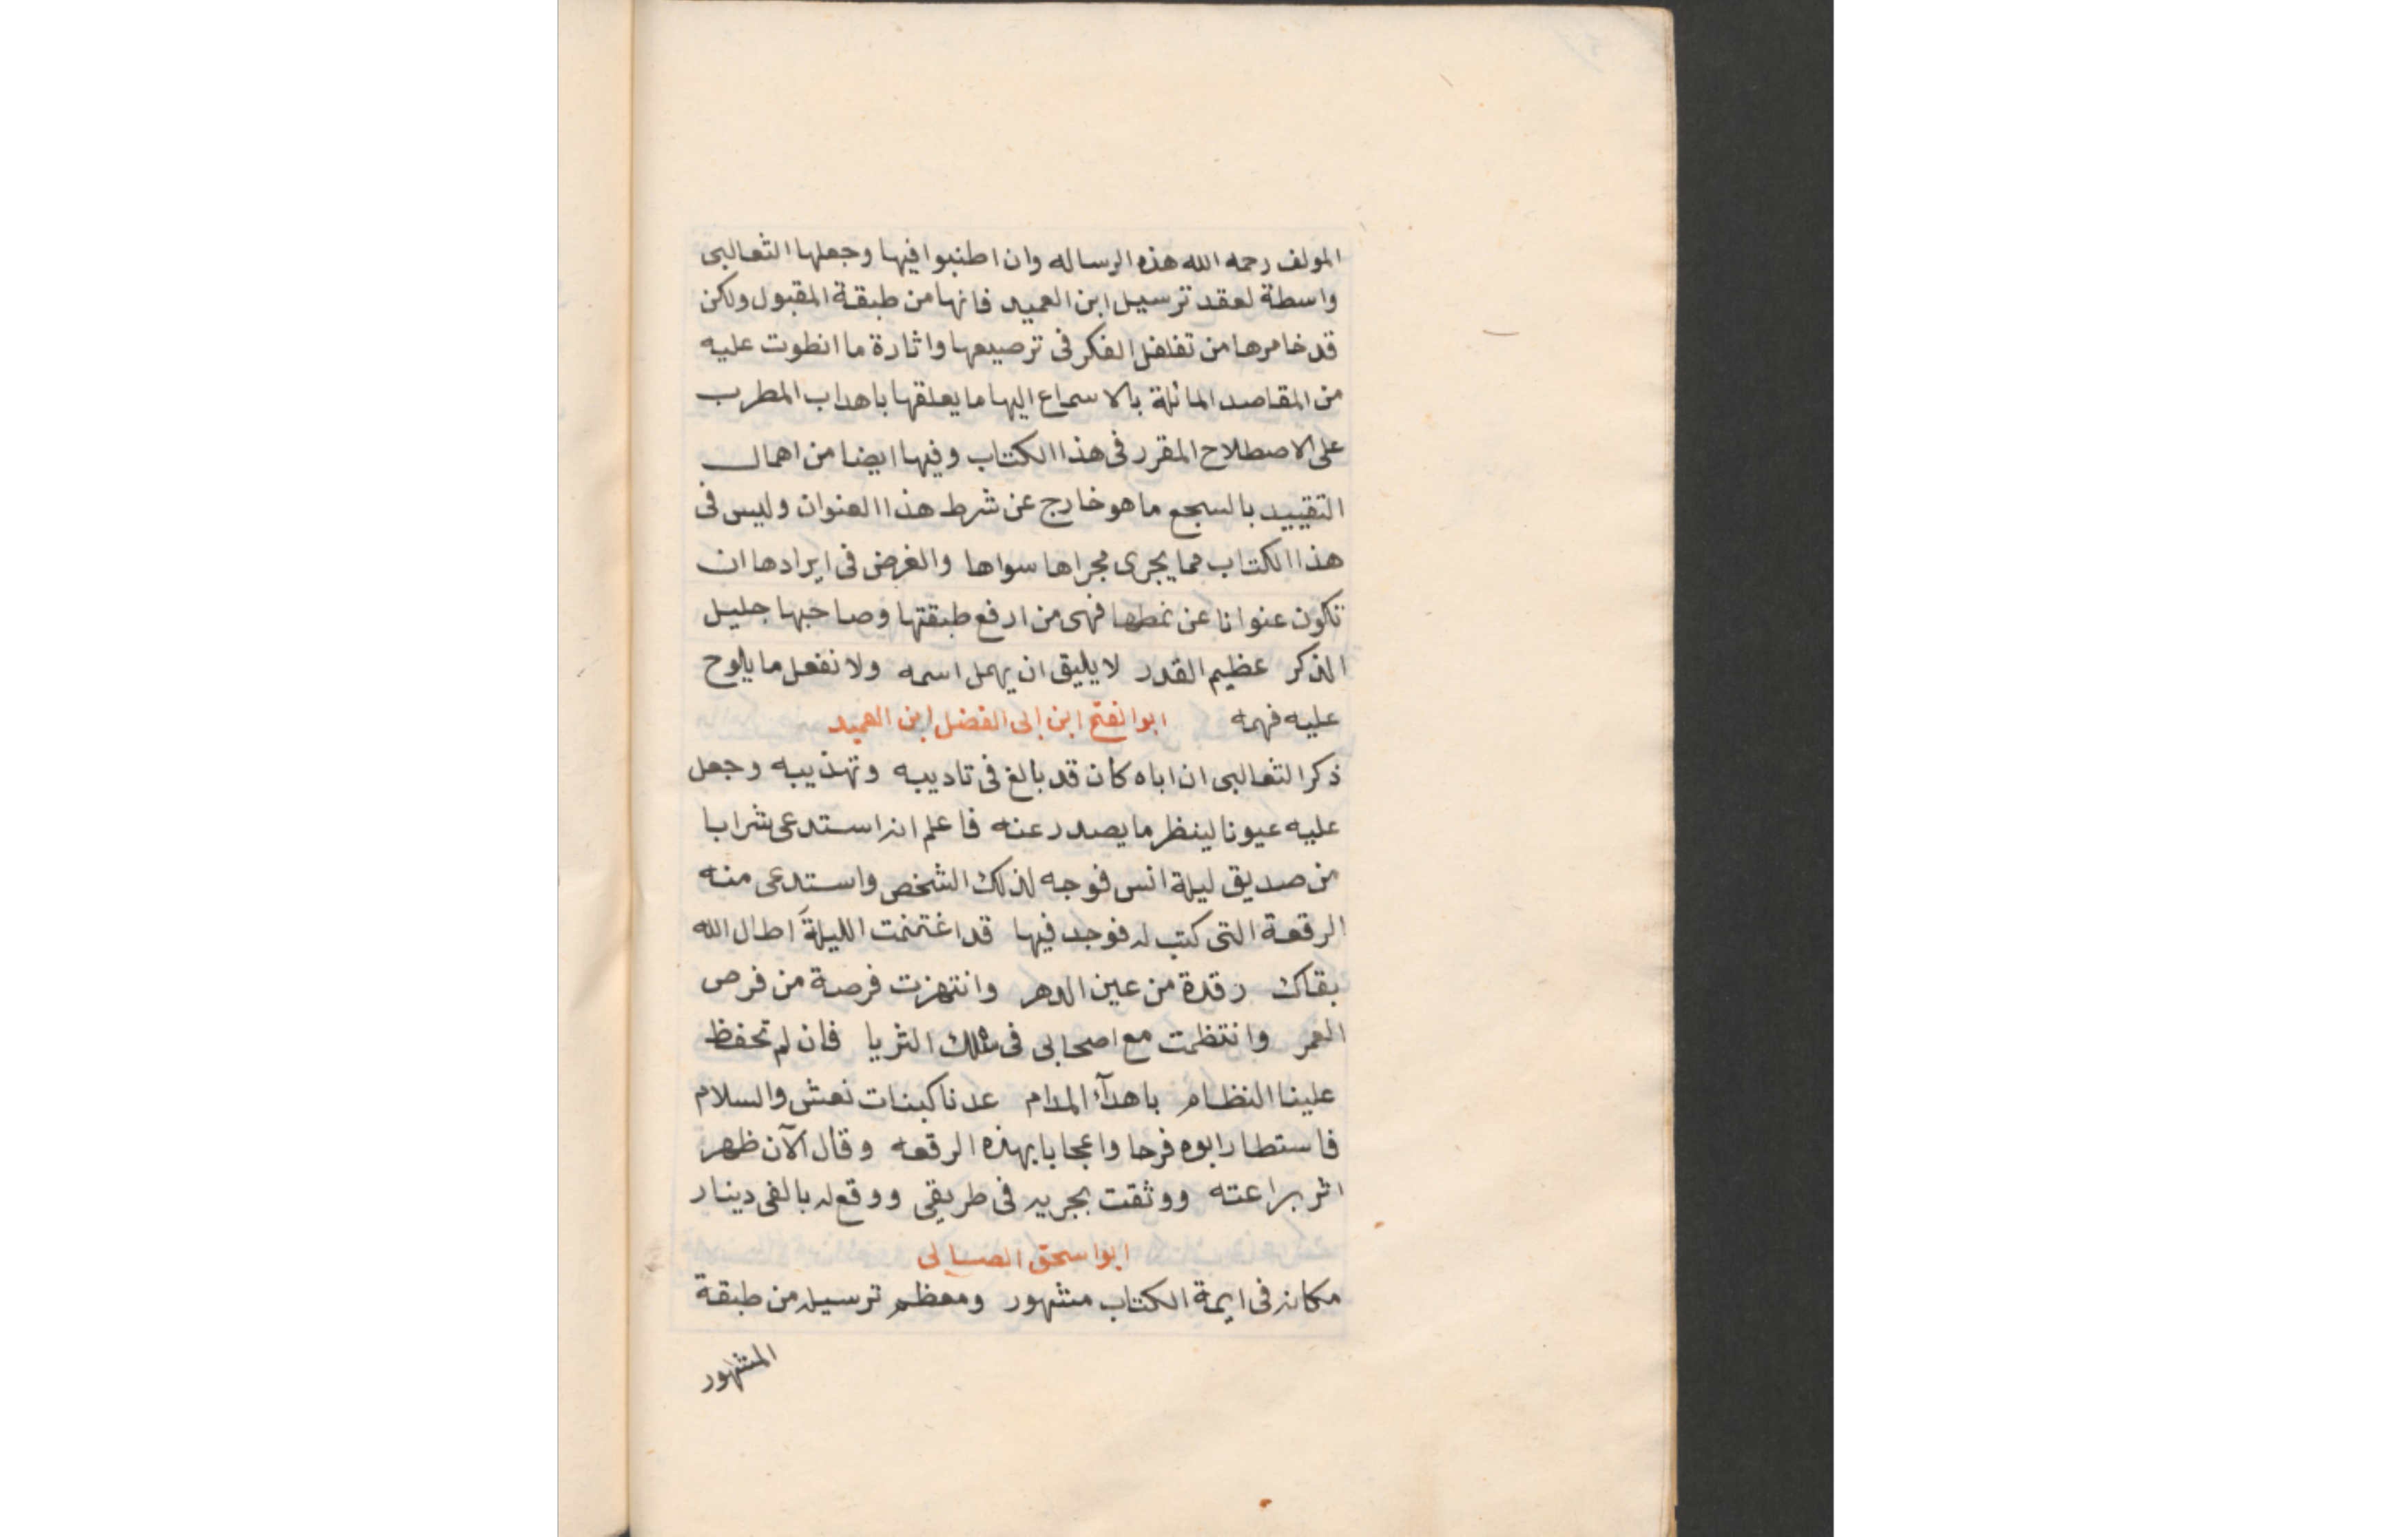 المولف رحمه الله هذه الرساله وان اطنبوا فيها وجعلها الثعالبى
واسطة لعقد ترسيل ابن العميد فانها من طبقة المقبول ولكن
قد خامرها من تغلغل الفكر فى ترصيعها واثارة ما انطوت عليه
من المقاصد المائلة بالاسماع اليها ما يعلقها باهداب المطرب
على الاصطلاح المقرر فى هذا الكتاب وفيها ايضا من اهمال
التقييد بالسجع ما هو خارج عن شرط هذا العنوان وليس فى
هذا الكتاب مما يجرى مجراها سواها والغرض فى ايرادها ان
تكون عنوانا عن نمطها فهى من ارفع طبقتها وصاحبها جليل
الذكر عظيم القدر لا يليق ان يهمل اسمه ولا نفعل ما يلوح
عليه فهمه ابو الفتح ابن ابى الفضل ابن العميد
ذكر الثعالبى ان اباه كان قد بالغ فى تاديبه وتهذيبه وجعل
عليه عيونا لينظر ما يصدر عنه فاعلم انه استدعى شرابا
من صديق ليلة انس فوجه لذلك الشخص واستدعى منه
الرقعة التى كتب له فوجد فيها قد اغتنمت الليلة اطال الله
بقاك رقدة من عين الدهر وانتهزت فرصة من فرص
العمر وانتظمت مع اصحابى فى سلك الثريا فان لم تحفظ
علينا النظام باهدآء المدام عدنا كبنات نعش والسلام
فاستطار ابوه فرحا واعجابا بهذه الرقعه وقال الآن ظهر
اثر براعته ووثقت بجريه فى طريقى ووقع له بالفى دينار
ابو اسحق الصابى
مكانه فى ايمة الكتاب مشهور ومعظم ترسيله من طبقة
المشهور